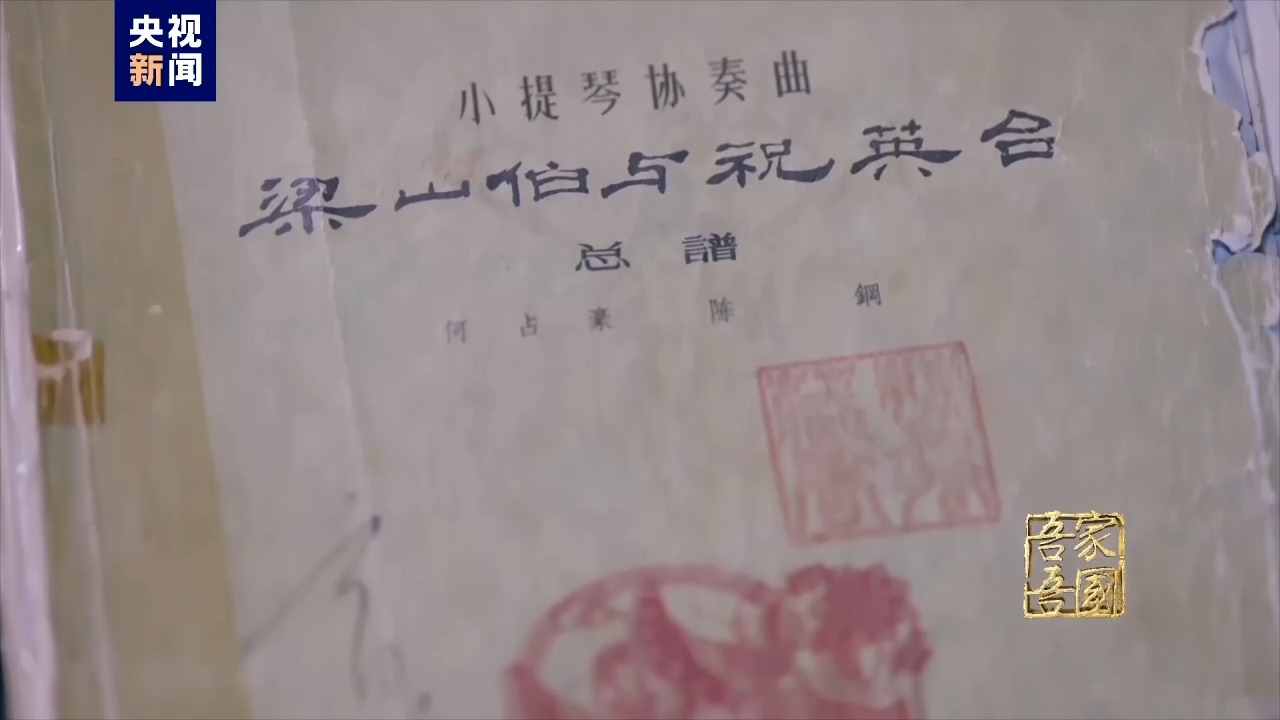 央视
新闻
小提琴协奏曲
梁山伯与祝英台
总譜
何占豪 陈鋼
吾家
吾國